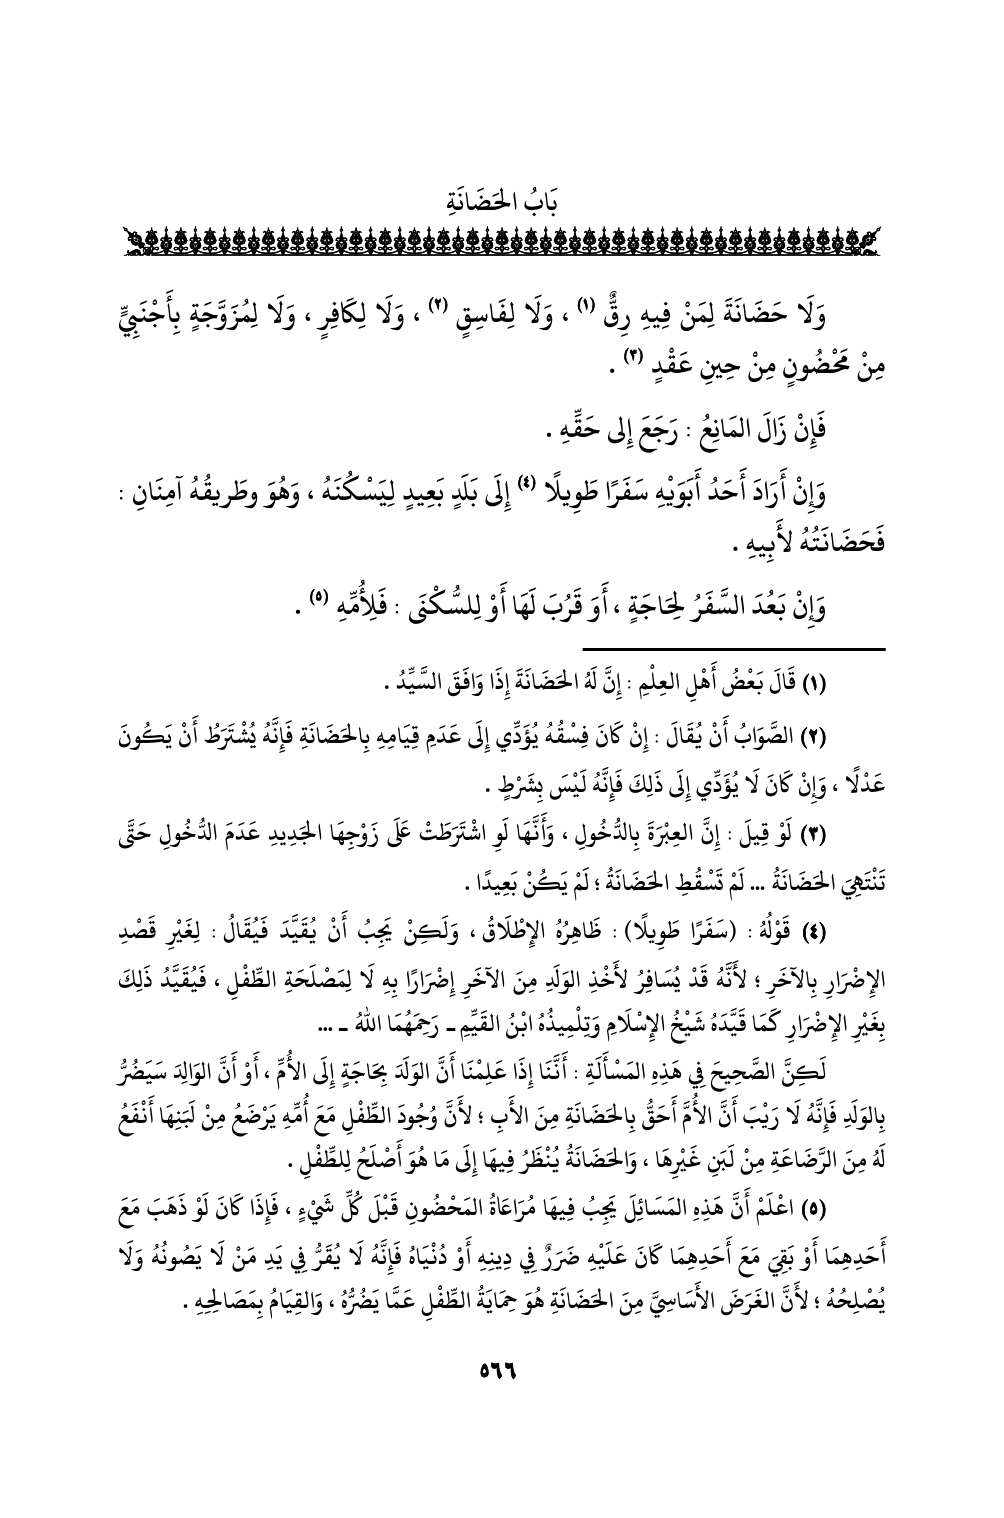 بَابُ الحَضَانَةِ
وَلَا حَضَانَةَ لِمَنْ فِيهِ رِقٌّ (١) ، وَلَا لِفَاسِقٍ (٢) ، وَلَا لِكَافِرٍ ، وَلَا لِمُزَوَّجَةٍ بِأَجْنَبِيٍّ
مِنْ مَحْضُونٍ مِنْ حِينِ عَقْدٍ (٣) .
فَإِنْ زَالَ المَانِعُ : رَجَعَ إِلى حَقِّهِ .
وَإِنْ أَرَادَ أَحَدُ أَبَوَيْهِ سَفَرًا طَوِيلًا (٤) إِلَى بَلَدٍ بَعِيدٍ لِيَسْكُنَهُ ، وَهُوَ وطَرِيقُهُ آمِنَانِ :
فَحَضَانَتُهُ لأَبِيهِ .
وَإِنْ بَعُدَ السَّفَرُ لِحَاجَةٍ ، أَوَ قَرُبَ لَهَا أَوْ لِلسُّكْنَى : فَلِأُمِّهِ (٥) .
(١) قَالَ بَعْضُ أَهْلِ العِلْمِ : إِنَّ لَهُ الحَضَانَةَ إِذَا وَافَقَ السَّيِّدُ .
(٢) الصَّوَابُ أَنْ يُقَالَ : إِنْ كَانَ فِسْقُهُ يُؤَدِّي إِلَى عَدَمِ قِيَامِهِ بِالحَضَانَةِ فَإِنَّهُ يُشْتَرَطُ أَنْ يَكُونَ
عَدْلًا ، وَإِنْ كَانَ لَا يُؤَدِّي إِلَى ذَلِكَ فَإِنَّهُ لَيْسَ بِشَرْطٍ .
(٣) لَوْ قِيلَ : إِنَّ العِبْرَةَ بِالدُّخُولِ ، وَأَنَّهَا لَوِ اشْتَرَطَتْ عَلَى زَوْجِهَا الجَدِيدِ عَدَمَ الدُّخُولِ حَتَّى
تَنْتَهِيَ الحَضَانَةُ ... لَمْ تَسْقُطِ الحَضَانَةُ ؛ لَمْ يَكُنْ بَعِيدًا .
(٤) قَوْلُهُ : (سَفَرًا طَوِيلًا) : ظَاهِرُهُ الإِطْلَاقُ ، وَلَكِنْ يَجِبُ أَنْ يُقَيَّدَ فَيُقَالُ : لِغَيْرِ قَصْدِ
الإِضْرَارِ بِالآخَرِ ؛ لأَنَّهُ قَدْ يُسَافِرُ لأَخْذِ الوَلَدِ مِنَ الآخَرِ إِضْرَارًا بِهِ لَا لِمَصْلَحَةِ الطِّفْلِ ، فَيُقَيَّدُ ذَلِكَ
بِغَيْرِ الإِضْرَارِ كَمَا قَيَّدَهُ شَيْخُ الإِسْلَامِ وَتِلْمِيذُهُ ابْنُ القَيِّمِ ـ رَحِمَهُمَا اللهُ ـ ...
لَكِنَّ الصَّحِيحَ فِي هَذِهِ المَسْأَلَةِ : أَنَّنَا إِذَا عَلِمْنَا أَنَّ الوَلَدَ بِحَاجَةٍ إِلَى الأُمِّ ، أَوْ أَنَّ الوَالِدَ سَيَضُرُّ
بِالوَلَدِ فَإِنَّهُ لَا رَيْبَ أَنَّ الأُمَّ أَحَقُّ بِالحَضَانَةِ مِنَ الأَبِ ؛ لأَنَّ وُجُودَ الطِّفْلِ مَعَ أُمِّهِ يَرْضَعُ مِنْ لَبَنِهَا أَنْفَعُ
لَهُ مِنَ الرَّضَاعَةِ مِنْ لَبَنِ غَيْرِهَا ، وَالحَضَانَةُ يُنْظَرُ فِيهَا إِلَى مَا هُوَ أَصْلَحُ لِلطِّفْلِ .
(٥) اعْلَمْ أَنَّ هَذِهِ المَسَائِلَ يَجِبُ فِيهَا مُرَاعَاةُ المَحْضُونِ قَبْلَ كُلِّ شَيْءٍ ، فَإِذَا كَانَ لَوْ ذَهَبَ مَعَ
أَحَدِهِمَا أَوْ بَقِيَ مَعَ أَحَدِهِمَا كَانَ عَلَيْهِ ضَرَرٌ فِي دِينِهِ أَوْ دُنْيَاهُ فَإِنَّهُ لَا يُقَرُّ فِي يَدِ مَنْ لَا يَصُونُهُ وَلَا
يُصْلِحُهُ ؛ لأَنَّ الغَرَضَ الأَسَاسِيَّ مِنَ الحَضَانَةِ هُوَ حِمَايَةُ الطِّفْلِ عَمَّا يَضُرُّهُ ، وَالقِيَامُ بِمَصَالِحِهِ .
٥٦٦